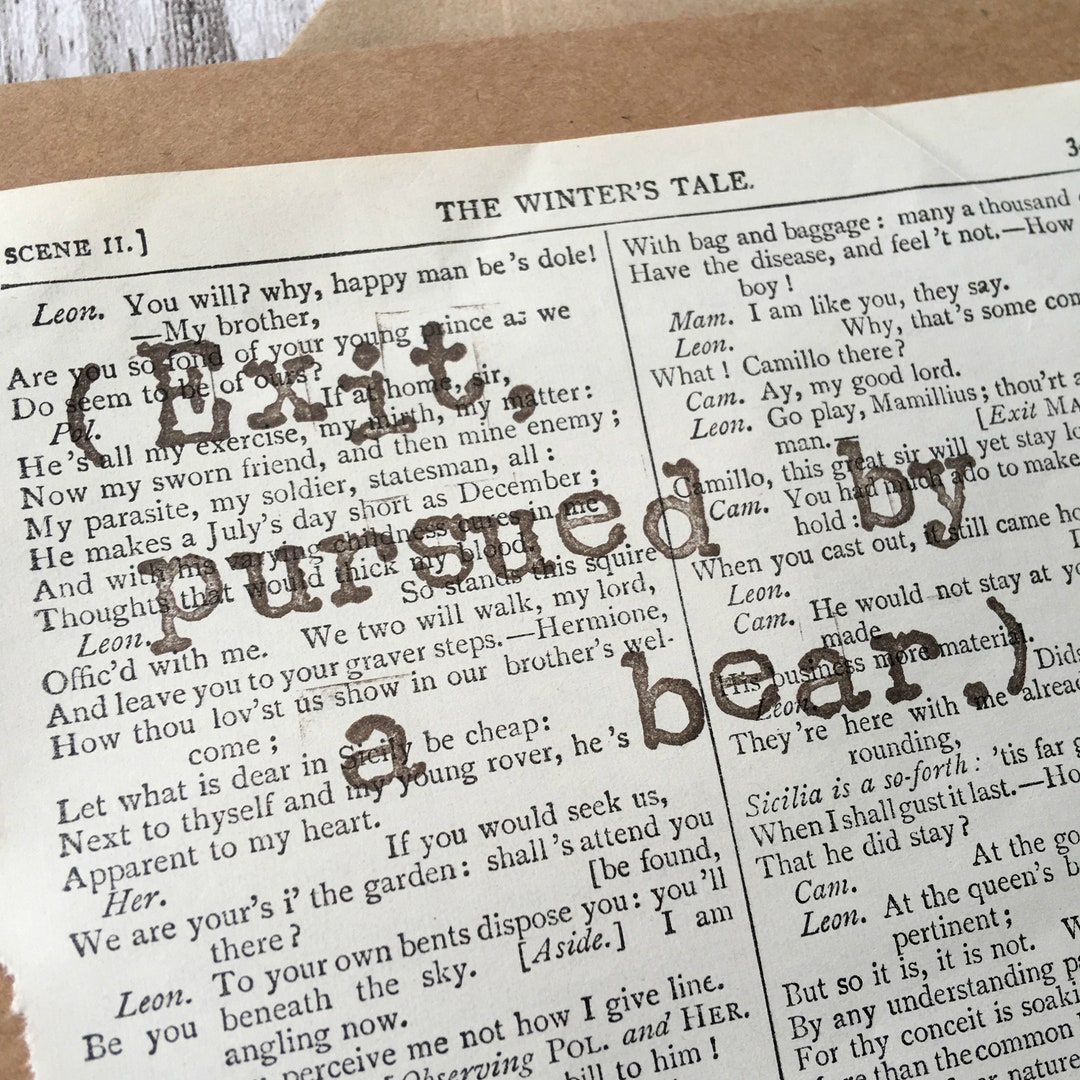 THE WINTER'S TALE.
SCENE II.]
(Exit,
pursued by
a bear.)
Leon. You will? why, happy man be's dole!
—My brother,
Are you so fond of your young prince as we
Do seem to be of ours?
Pol. If at home, sir,
He's all my exercise, my mirth, my matter:
Now my sworn friend, and then mine enemy;
My parasite, my soldier, statesman, all:
He makes a July's day short as December;
And with his varying childness cures in me
Thoughts that would thick my blood.
Leon. So stands this squire
Offic'd with me. We two will walk, my lord,
And leave you to your graver steps.—Hermione,
How thou lov'st us show in our brother's wel-
come;
Let what is dear in Sicily be cheap:
Next to thyself and my young rover, he's
Apparent to my heart.
Her. If you would seek us,
We are your's i' the garden: shall's attend you
there? [be found,
Leon. To your own bents dispose you: you'll
Be you beneath the sky. [Aside.] I am
angling now.
perceive me not how I give line.
Observing POL. and HER.
bill to him!
With bag and baggage: many a thousand
Have the disease, and feel't not.—How
boy!
Mam. I am like you, they say.
Leon. Why, that's some
What! Camillo there?
Cam. Ay, my good lord.
Leon. Go play, Mamillius; thou'rt
man.— [Exit
Camillo, this great sir will yet stay
Cam. You had much ado to make
hold:
When you cast out, it still came
Leon.
Cam. He would not stay at
made
His business more material.
Leon. Did
They're here with me
rounding,
Sicilia is a so-forth: 'tis far
When I shall gust it last.—
That he did stay?
Cam. At the
Leon. At the queen's
pertinent;
But so it is, it is not.
By any understanding
For thy conceit is
than the common